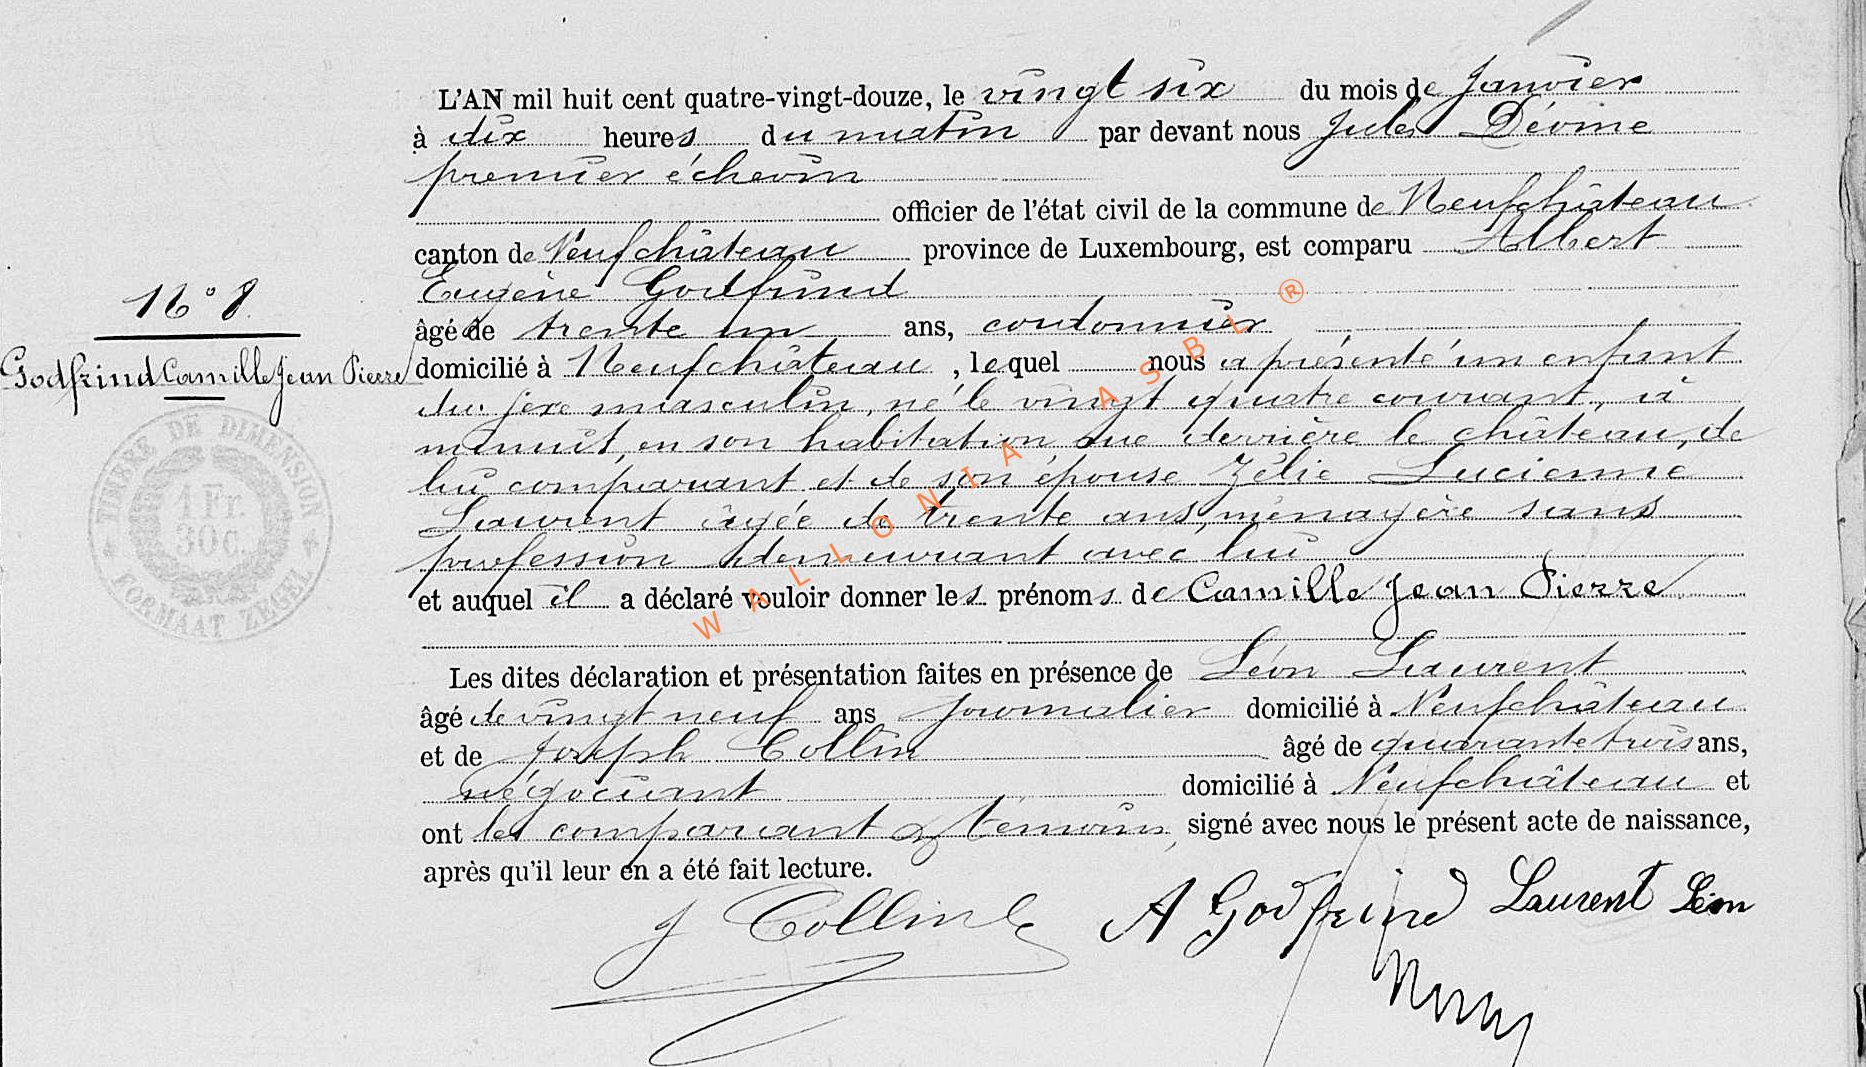 L'AN mil huit cent quatre-vingt-douze, le vingt six du mois de Janvier
à dix heures du matin par devant nous Jules Devine
premier échevin
officier de l'état civil de la commune de Neufchâteau
canton de Neufchâteau province de Luxembourg, est comparu Albert
Eugène Godfrind
âgé de trente un ans, cordonnier
domicilié à Neufchâteau, lequel nous a présenté un enfant
du sexe masculin, né le vingt quatre courant, à
minuit, en son habitation rue derrière le château, de
lui comparant et de son épouse Zélie Lucienne
Laurent âgée de trente ans, ménagère sans
profession demeurant avec lui
et auquel il a déclaré vouloir donner les prénoms de Camille Jean Pierre
Les dites déclaration et présentation faites en présence de Léon Laurent
âgé de vingt neuf ans journalier domicilié à Neufchâteau
et de Joseph Collin âgé de quarante trois ans,
négociant domicilié à Neufchâteau et
ont les comparant & témoins, signé avec nous le présent acte de naissance,
après qu'il leur en a été fait lecture.
J Collin A Godfrind Laurent Léon
N° 8.
Godfrind Camille Jean Pierre
TIMBRE DE DIMENSION
1 Fr.
30 c.
FORMAAT ZEGEL
WALLONIA ASBL ®